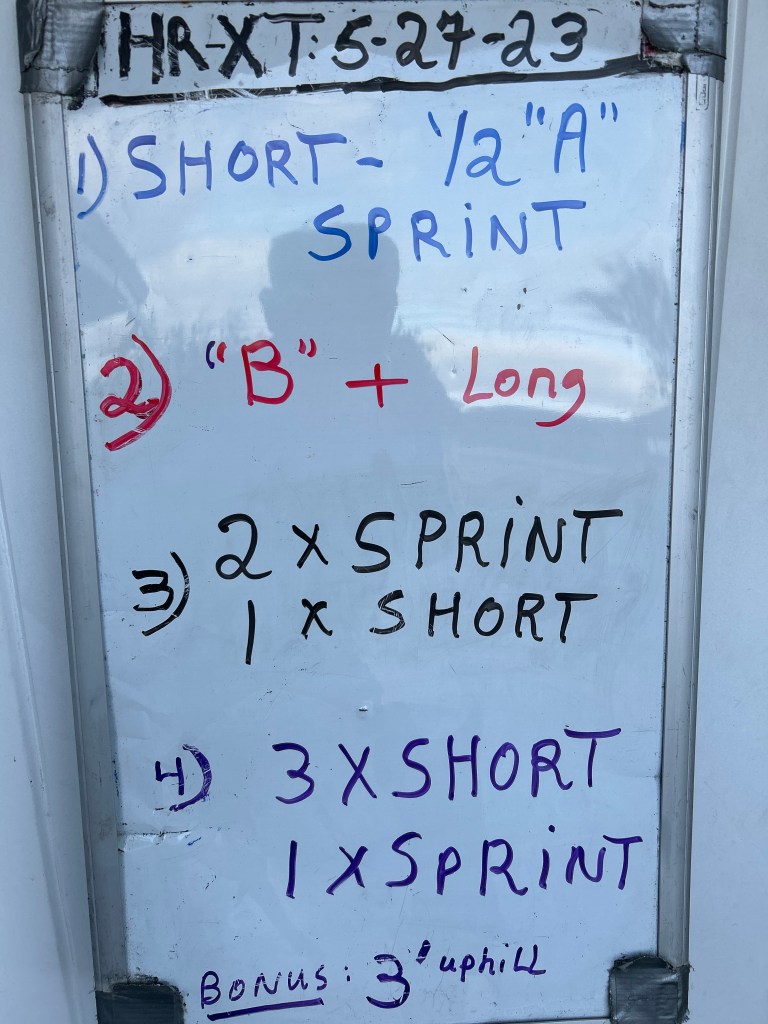 HR-XT: 5-27-23
1) SHORT - 1/2 "A"
SPRINT
2) "B" + Long
3) 2 X SPRINT
1 X SHORT
4) 3 X SHORT
1 X SPRINT
BONUS: 3' uphill